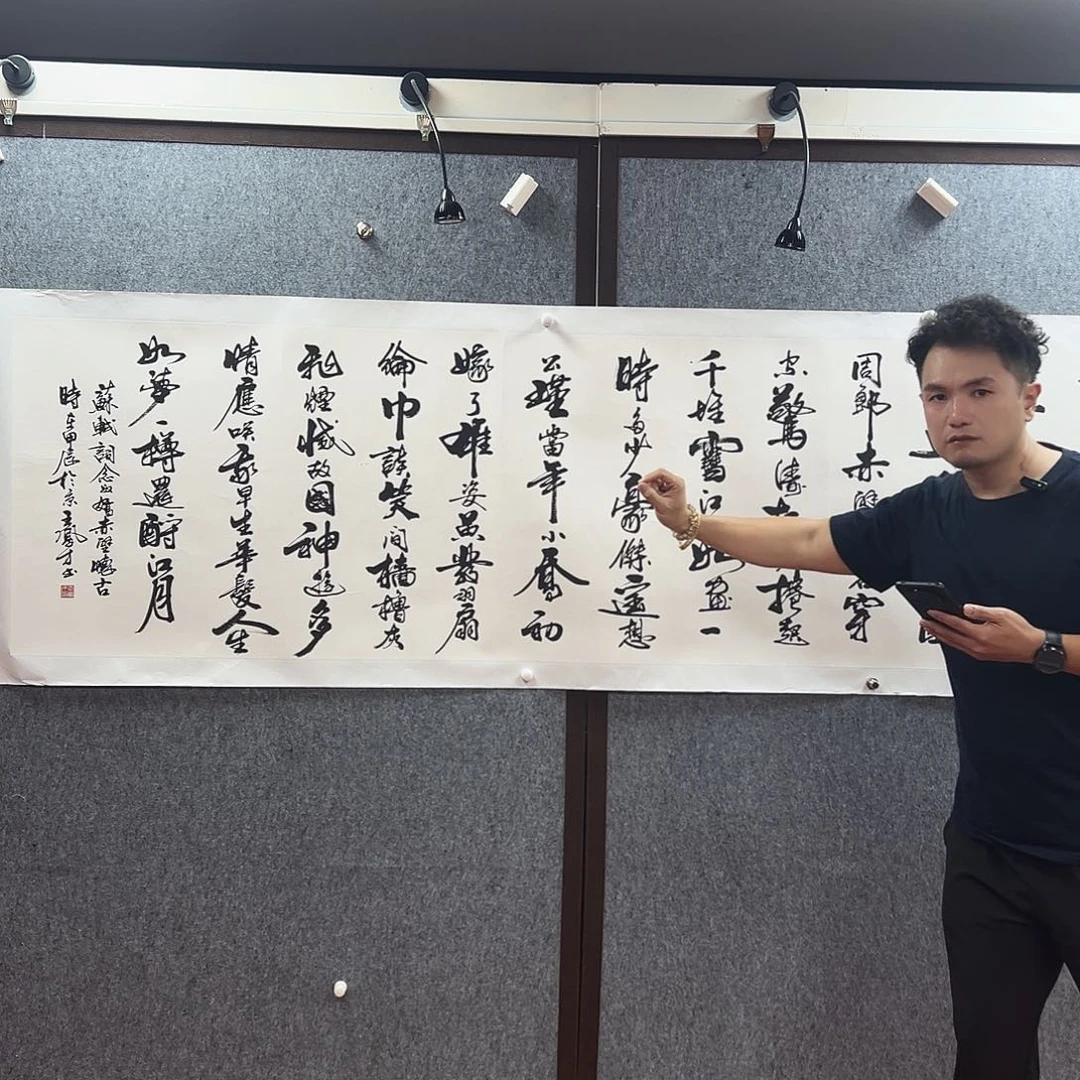 周郎赤壁石穿
空驚濤捲起
千堆雪江如畫一
時多少豪傑遙想
公瑾當年小喬初
嫁了雄姿英發羽扇
綸巾談笑間檣櫓灰
飛煙滅故國神遊多
情應笑我早生華髮人生
如夢一樽還酹江月
蘇軾詞念奴嬌赤壁懷古
時在甲辰於京王鳳才書